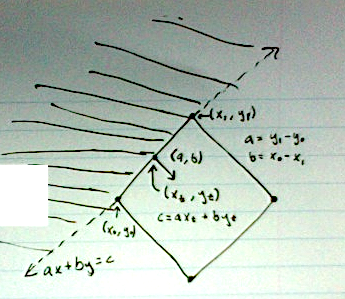 (x₁, y₁)
a = y₁-y₀
b = x₀-x₁
(a, b)
(xₜ, yₜ)
c=axₜ + byₜ
(x₀, y₀)
ax+by=c